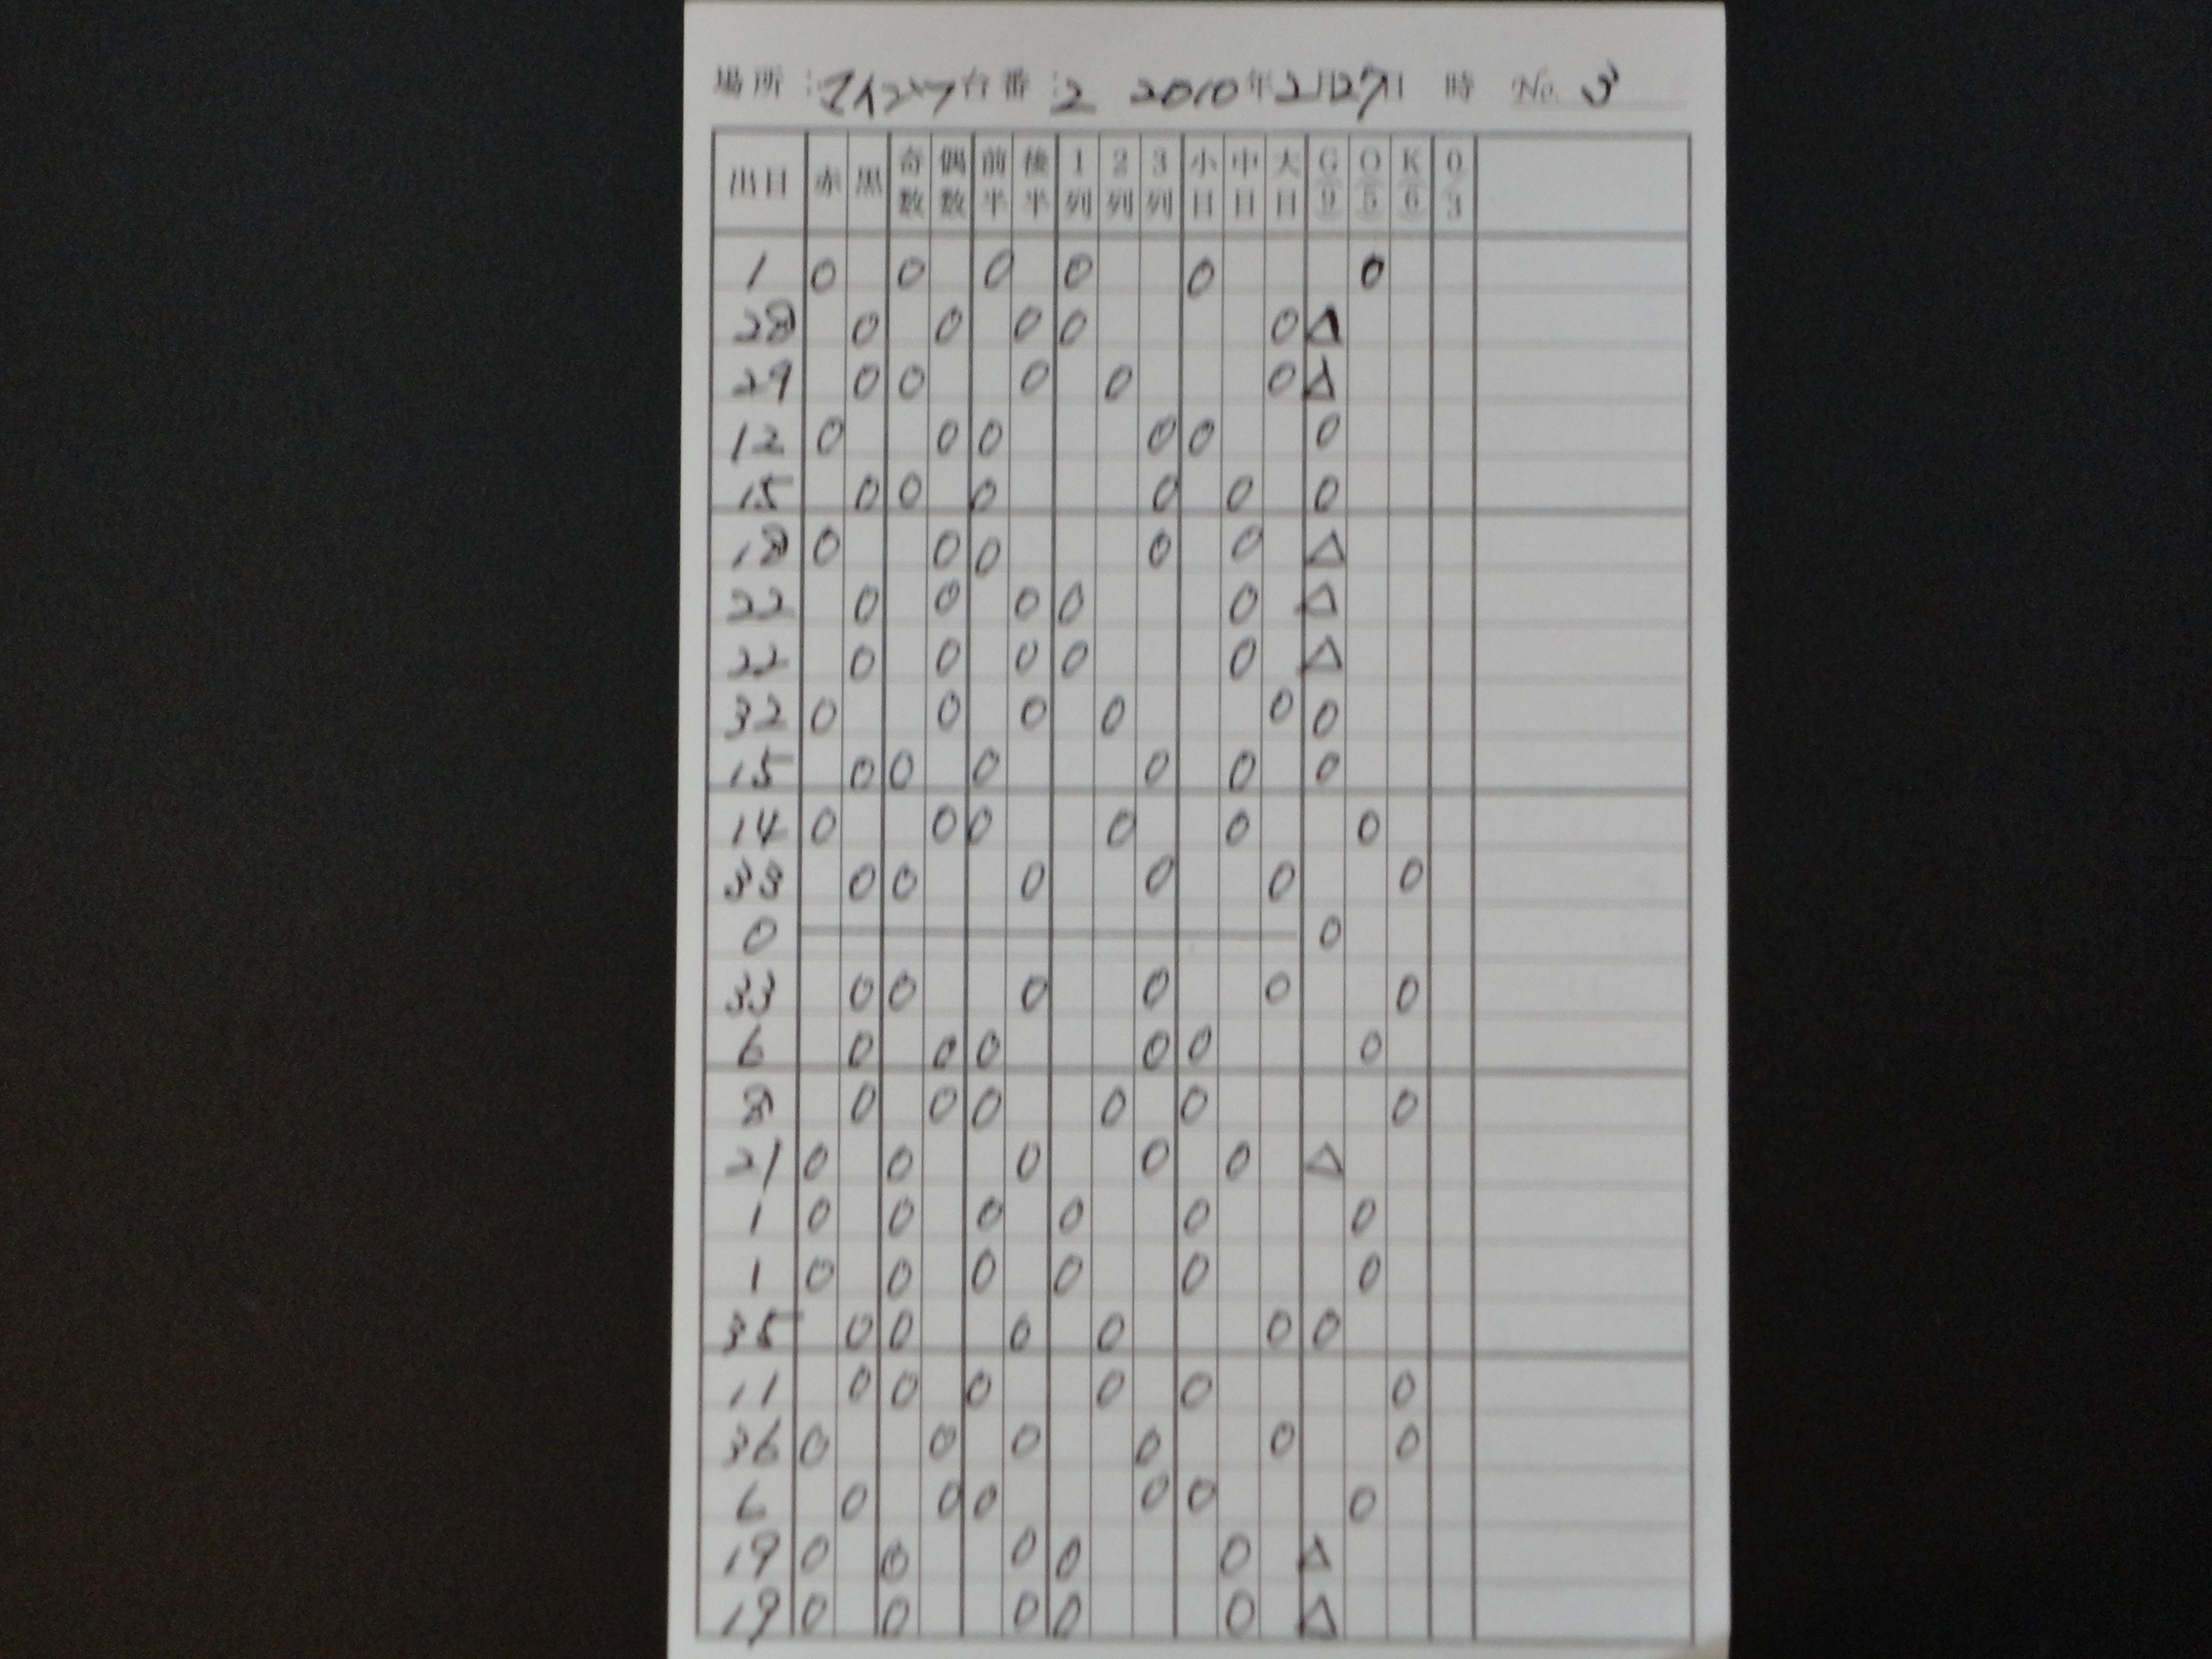 場所： 台番：2 2010年2月27日 時 No. 3
出目 赤 黒 奇数 偶数 前半 後半 1列 2列 3列 小目 中目 大目 G9 O5 K6 03
1 0 0 0 0 0 0
28 0 0 0 0 0 △
29 0 0 0 0 0 △
12 0 0 0 0 0 0
15 0 0 0 0 0 0
18 0 0 0 0 0 △
22 0 0 0 0 0 △
22 0 0 0 0 0 △
32 0 0 0 0 0 0
15 0 0 0 0 0 0
14 0 0 0 0 0 0
33 0 0 0 0 0 0
0 0
33 0 0 0 0 0 0
6 0 0 0 0 0 0
8 0 0 0 0 0 0
21 0 0 0 0 0 △
1 0 0 0 0 0 0
1 0 0 0 0 0 0
35 0 0 0 0 0 0
11 0 0 0 0 0 0
36 0 0 0 0 0 0
6 0 0 0 0 0 0
19 0 0 0 0 0 △
19 0 0 0 0 0 △